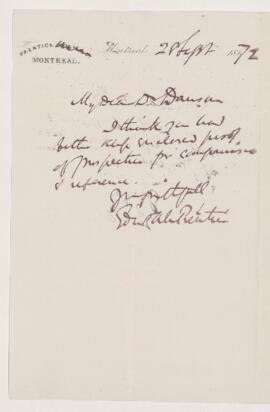 MONTREAL.
Montreal 28 Sept 1872
My dear Dr Dawson
I think you had
better keep enclosed proof
of prospectus for comparison
& reference.
Yrs faithfully